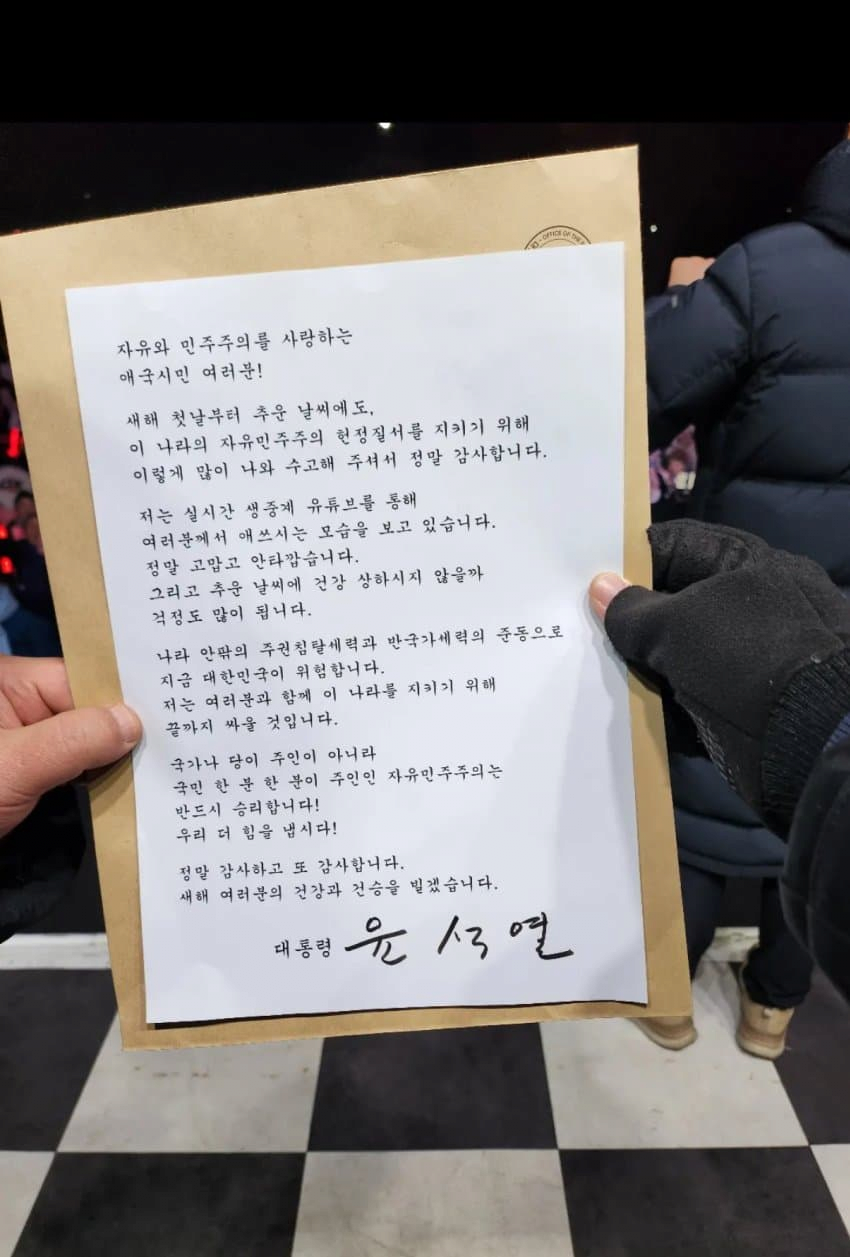 OFFICE OF THE
자유와 민주주의를 사랑하는
애국시민 여러분!
새해 첫날부터 추운 날씨에도,
이 나라의 자유민주주의 헌정질서를 지키기 위해
이렇게 많이 나와 수고해 주셔서 정말 감사합니다.
저는 실시간 생중계 유튜브를 통해
여러분께서 애쓰시는 모습을 보고 있습니다.
정말 고맙고 안타깝습니다.
그리고 추운 날씨에 건강 상하시지 않을까
걱정도 많이 됩니다.
나라 안팎의 주권침탈세력과 반국가세력의 준동으로
지금 대한민국이 위험합니다.
저는 여러분과 함께 이 나라를 지키기 위해
끝까지 싸울 것입니다.
국가나 당이 주인이 아니라
국민 한 분 한 분이 주인인 자유민주주의는
반드시 승리합니다!
우리 더 힘을 냅시다!
정말 감사하고 또 감사합니다.
새해 여러분의 건강과 건승을 빌겠습니다.
대통령 윤석열